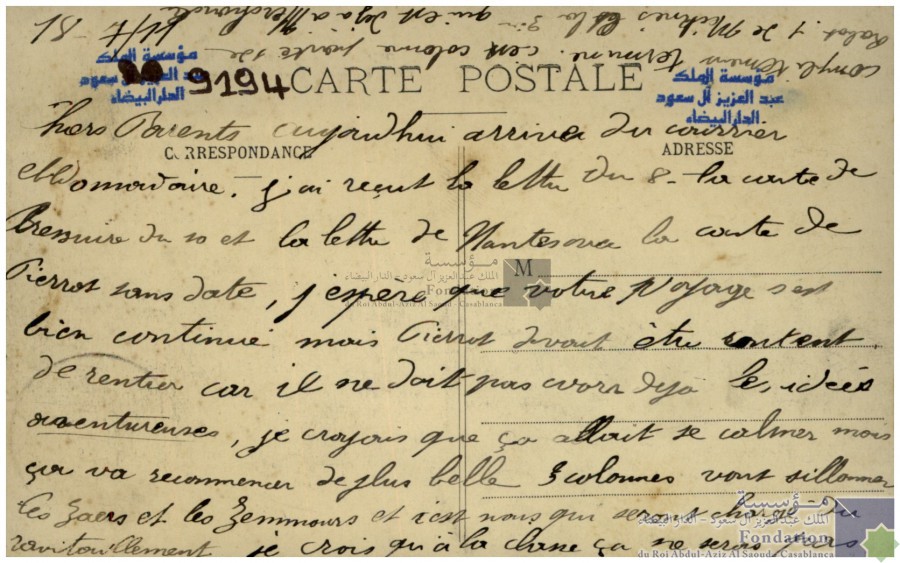 Rabat 1 de
complètement terminé. c'est colonne
qui est déjà à Merchouch
مؤسسة الملك
عبد العزيز آل سعود
الدار البيضاء
9194
CARTE POSTALE
مؤسسة الملك
عبد العزيز آل سعود
الدار البيضاء
hers Parents aujourdhui arrivée du courrier
CORRESPONDANCE
ADRESSE
ebdomadaire. j'ai reçut la lettre du 8 - la carte de
Bressuire du 10 et la lettre de Nantes la carte de
مؤسسة
الملك عبد العزيز آل سعود - الدار البيضاء
Fondation
du Roi Abdul-Aziz Al Saoud - Casablanca
M
Pierrot sans date, j'espère que votre voyage s'est
bien continué mais Pierrot devait être content
de rentrer car il ne doit pas avoir deja les idées
aventureuses, je croyais que ça allait se calmer mais
ça va recommencer de plus belle 3 colonnes vont sillonner
les Zaers et les Zemmours et c'est nous qui serons chargé du
ravitaillement je crois qu'à la chasse ça ne sera pas
مؤسسة
الملك عبد العزيز آل سعود - الدار البيضاء
Fondation
du Roi Abdul-Aziz Al Saoud - Casablanca